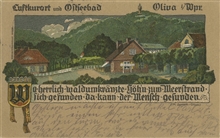 Luftkurort und Ostseebad Oliva Wpr.
O herrlich waldumkränzte Höhn zum Meerstrand
sich gefunden da kann der Mensch gesunden